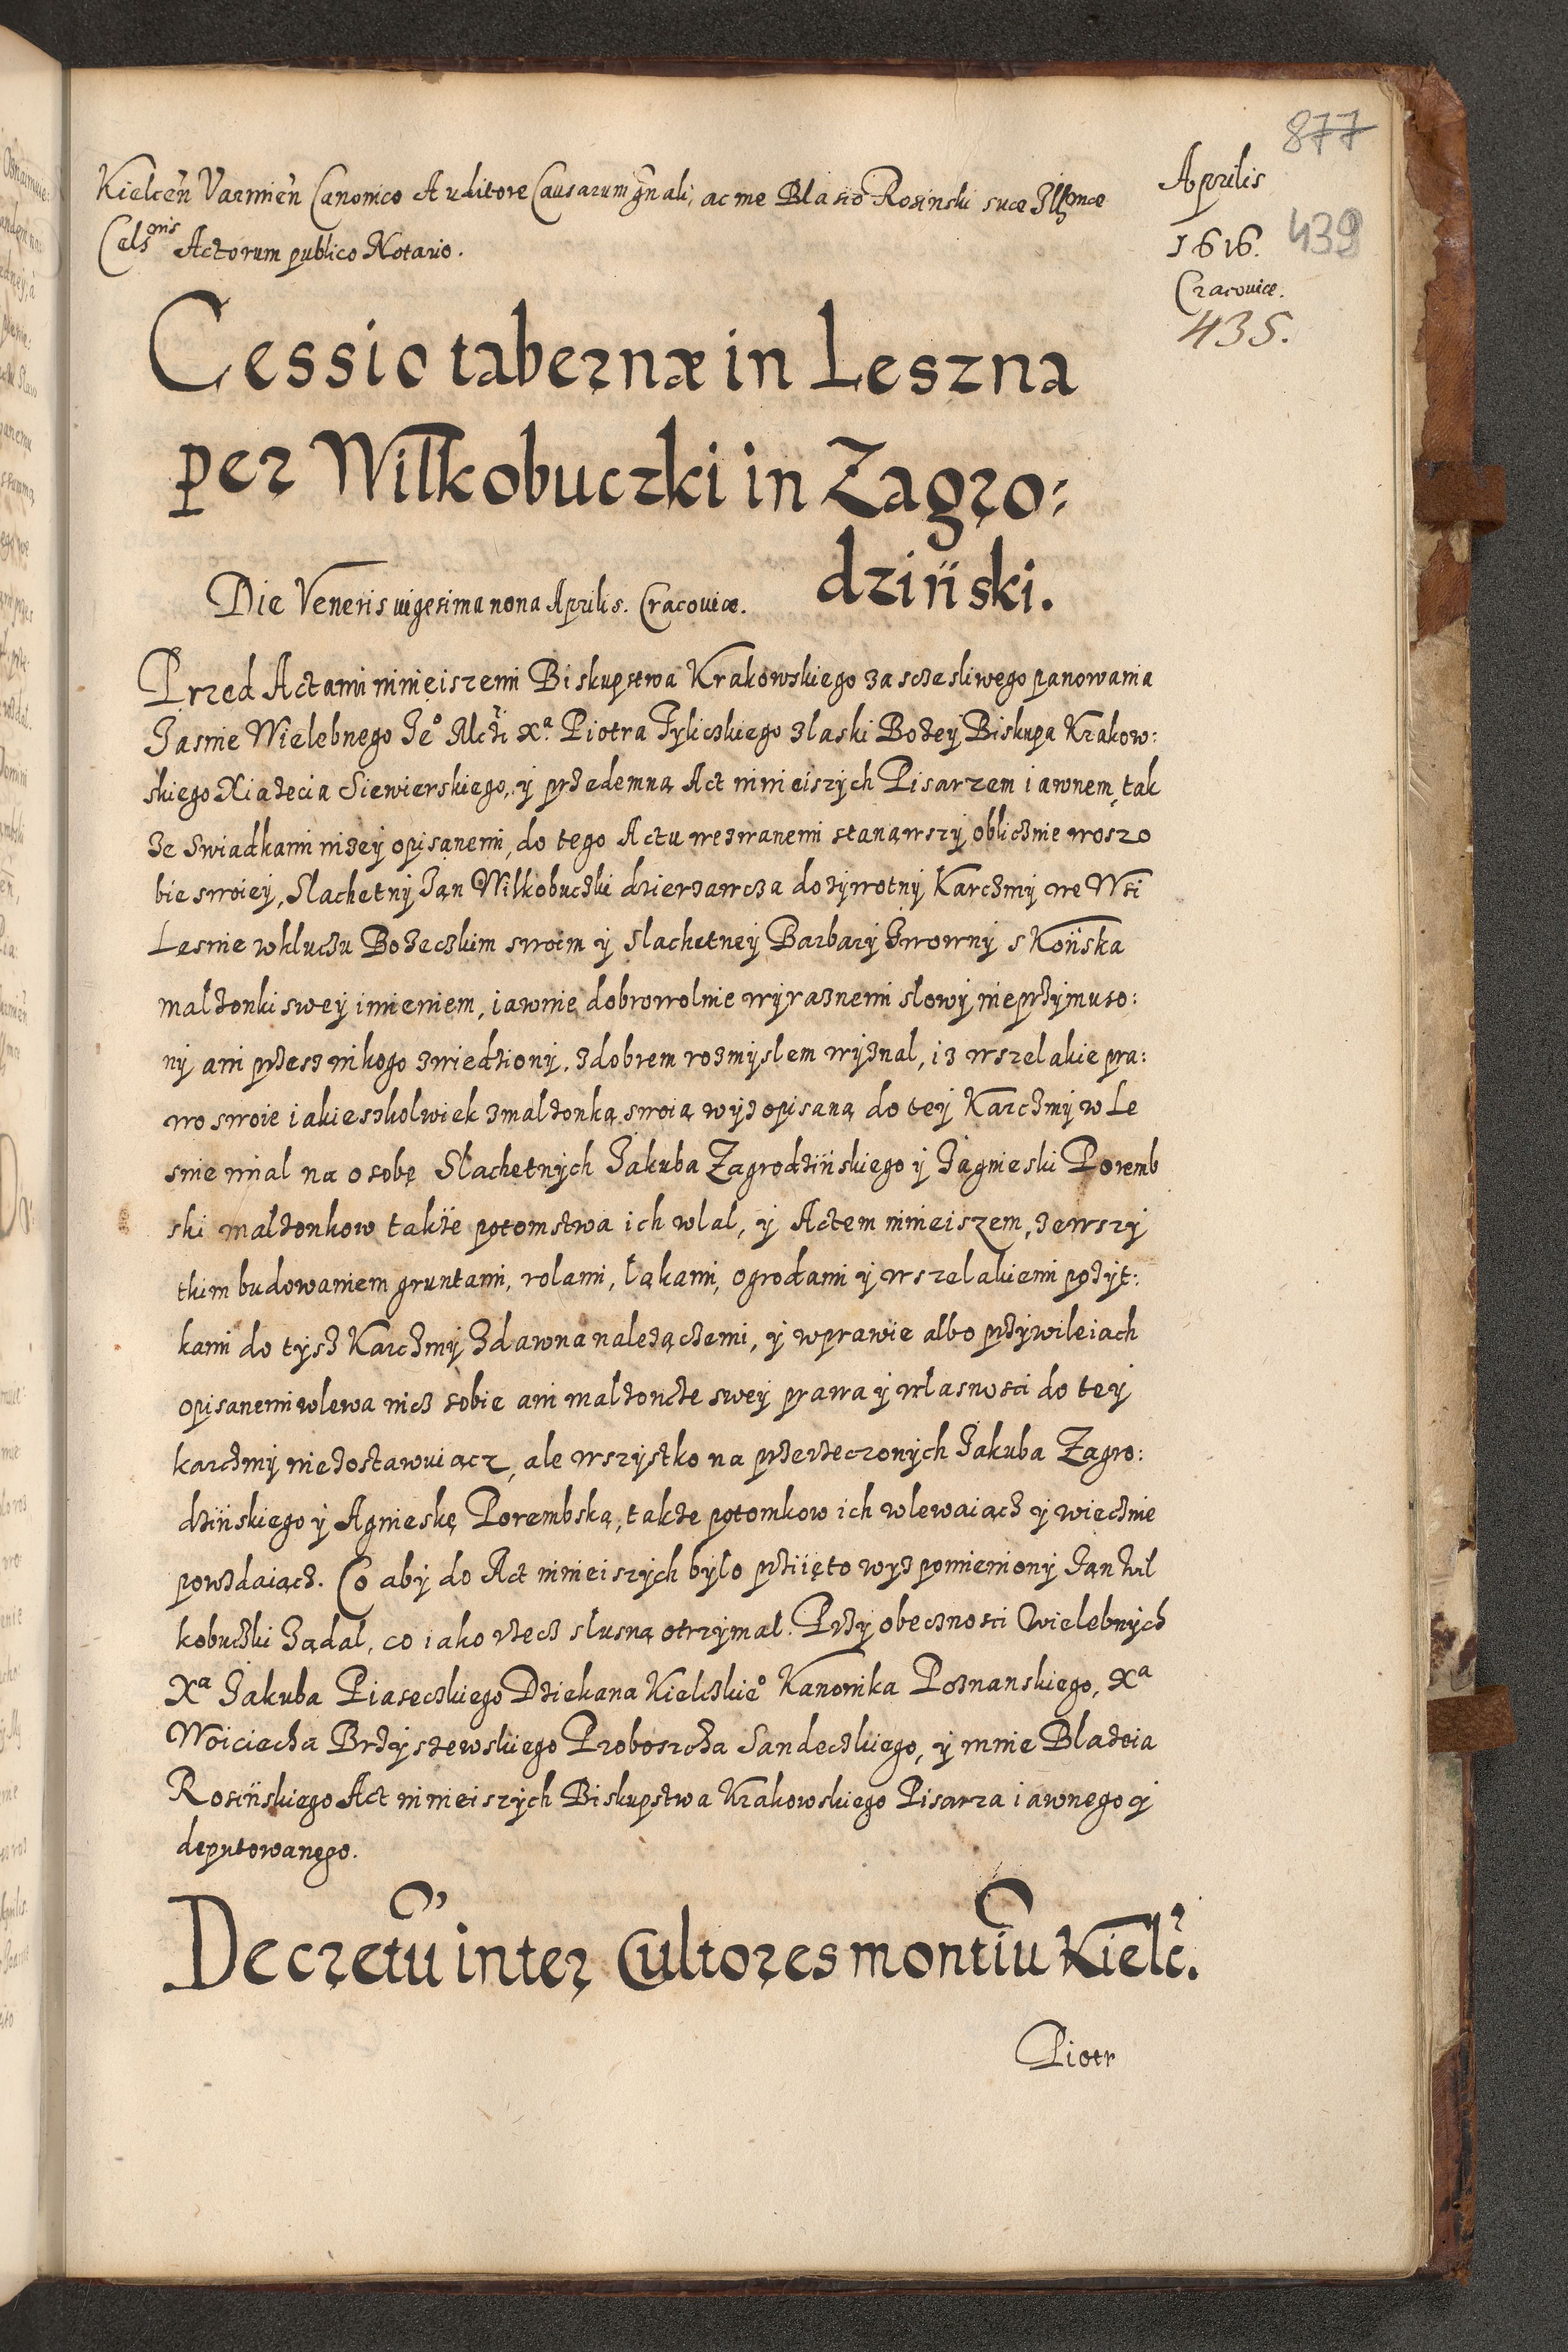 877
Aprilis
1616.
439
Cracouiæ.
435.
Kielceñ Varmieñ Canonico Auditore Causarum gñali, ac me Blasio Rosinski suæ Illmæ
Cels^nis Actorum publico Notario.
Cessio tabernæ in Leszna
per Wilkobuczki in Zagro:
dziński.
Die Veneris uigesima nona Aprilis. Cracouiæ.
Przed Actami ninieiszemi Biskupstwa Krakowskiego za sczesliwego panowania
Jasnie Wielebnego Je° Mczi X^a. Piotra Tyliczkiego z laski Bożey Biskupa Krakow:
skiego Xiażecia Siewierskiego, y przedemną Act ninieiszych Pisarzem iawnem, tak
ze swiadkami niżey opisanemi, do tego Actu wezwanemi stanąwszy oblicznie woszo
bie swoiey, Slachetny Jan Wilkobuczki dzierzawcza dożywotny Karczmy we Wsi
Lesnie w kluczu Bożeczkim swoim y Slachetney Barbary Jwowny s Końska
małżonki swey imieniem, iawnie dobrowolnie wyraznemi slowy nieprzymuszo:
ny ani przesz nikogo zwiedziony, z dobrem rozmyslem wyznal, iż wszelakie pra:
wo swoie iakieszkolwiek z malżonką swoią wyż opisaną do tey Karczmy w Le
snie mial na osobę Slachetnych Jakuba Zagrodzińskiego y Jagnieski Poremb
ski małżonkow także potomstwa ich wlal, y Actem ninieiszem, ze wszy
tkim budowaniem gruntami, rolami, ląkami, ogrodami y wszelakiemi pożyt:
kami do tysz Karczmy zdawna należączemi, y w prawie albo przywileiach
opisanemi wlewa nicz sobie ani malżoncze swey prawa y wlasnosci do tey
karczmy niezostawuiącz, ale wszystko na przerzeczonych Jakuba Zagro:
dzińskiego y Agnieskę Porembską, także potomkow ich wlewaiącz y wiecznie
powzdaiącz. Co aby do Act ninieiszych bylo prziięto wyż pomieniony Jan Wil
kobuczki żądal, co iako rzecz slusną otrzymal. Przy obecznosci Wielebnych
X^a Jakuba Piaseczkiego Dziekana Kielczkie° Kanonika Poznanskiego, X^a
Woiciecha Brzyszewskiego Proboszcza Sandeczkiego, y mnie Blażeia
Rosińskiego Act ninieiszych Biskupstwa Krakowskiego Pisarza iawnego y
deputowanego.
Decretũ inter Cultores montiũ Kielc̃.
Piotr